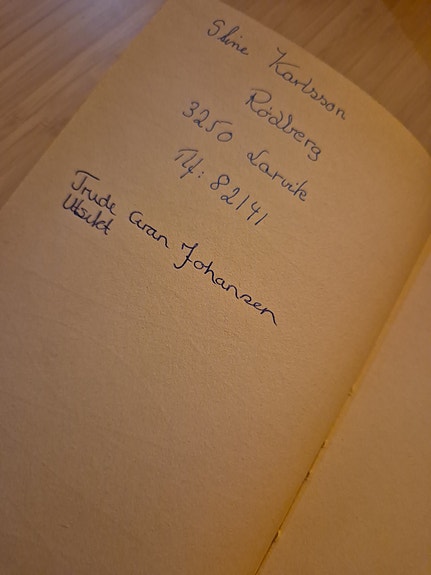 Stine Karlsson
Rödberg
3250 Larvik
Tlf: 82141
Trude Gran Johansen
Utsikt